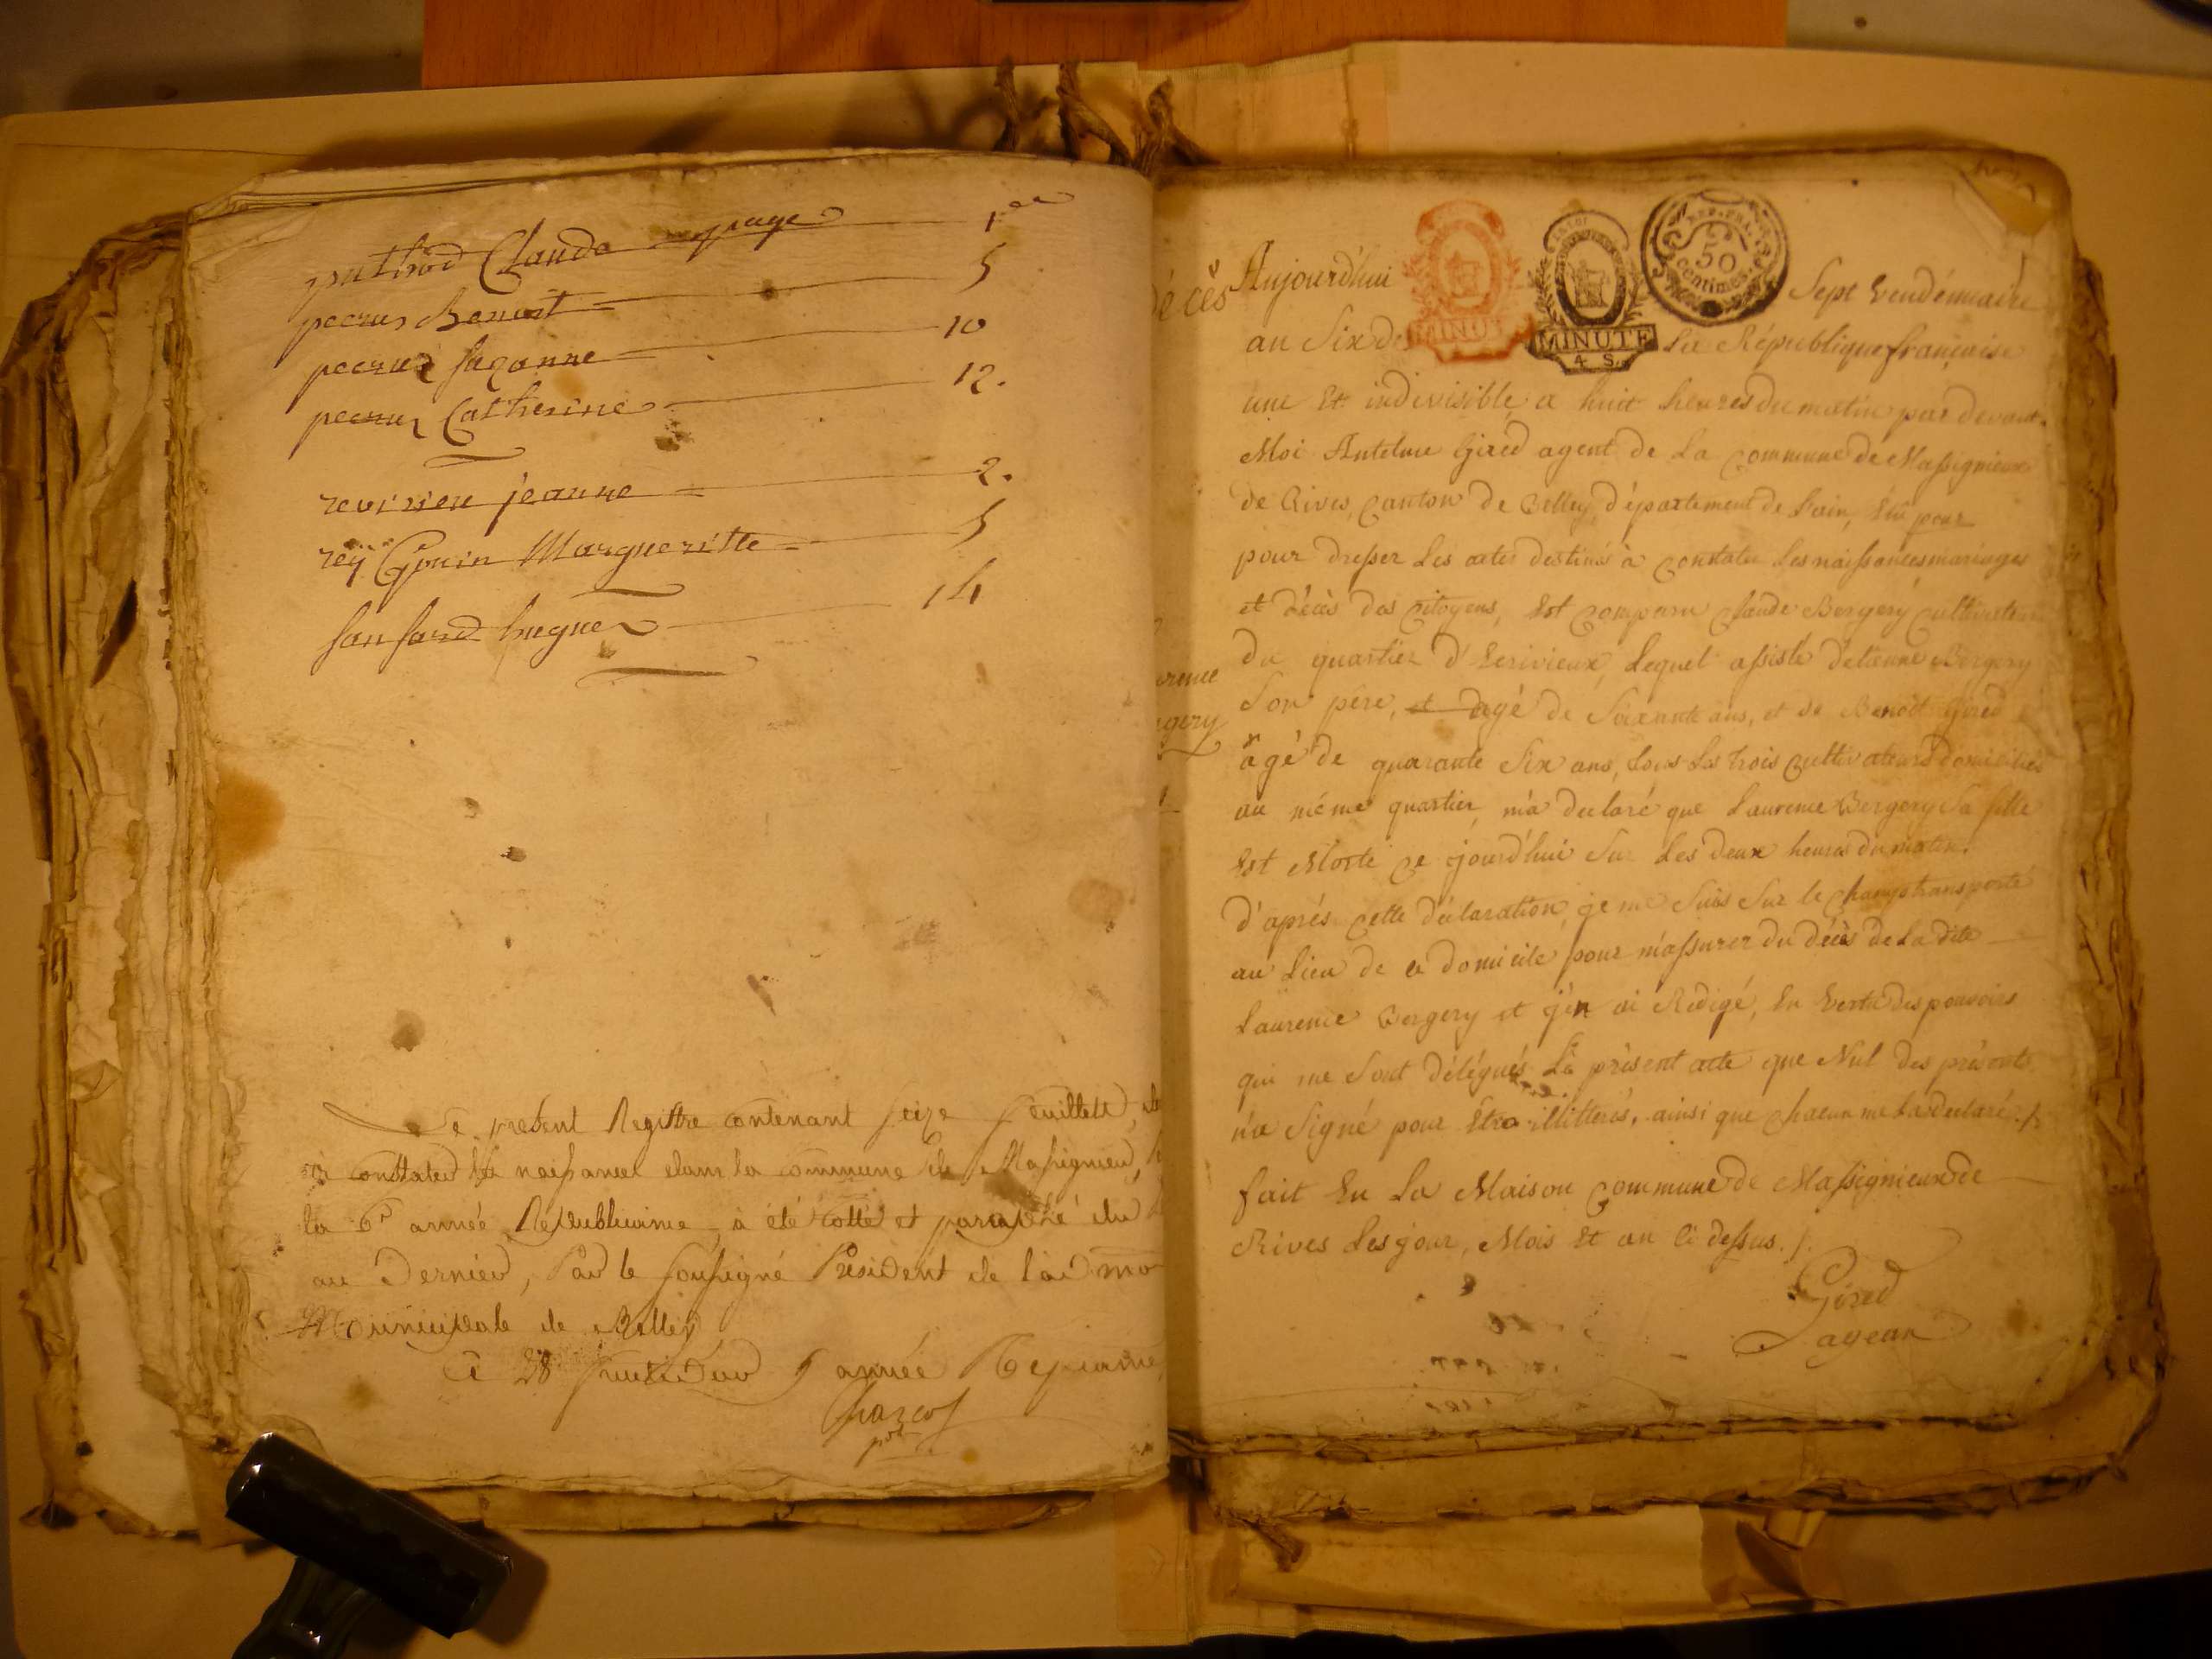 puthod Claude page 1ere
peerus Benoit 5
peerus suzanne 10
peerus Catherine 12.
revirieu jeanne 2.
rey Gouin Margueritte 5
sansard hugues 14
Le present Registre contenant seize feuillets,
à constater les naissances dans la commune de Massignieu,
la 6e année Republicaine, à été cotté et paraphé du
au Dernier, Par le soussigné Président de l'adm.on
Municipale de Belley
Ce 28 fructidor 5 année Republicaine
Charcot
pdt
décès
Laurence
Bergery
Aujourd'hui Sept Vendémiaire
MINUTE
MINUTE
4 S.
REP. FRA.
50
centimes.
an Six de La République française
une Et indivisible a huit heures du matin par devant
Moi Antelme Gired agent de La Commune de Massignieux
de Rives, Canton de Belley, département de L'ain, Elu pour
pour dresser Les actes destinés à Constater Les naissances mariages
et décès des Citoyens, Est Comparu Claude Bergery Cultivateur
du quartier d'Ecrivieux, Lequel assisté d'etienne Bergery
Son père, et agé de Soixante ans, et de Benoît Gired
âgé de quarante Six ans, tous Les trois Cultivateurs domiciliés
au même quartier, m'a declaré que Laurence Bergery Sa fille
Est Morte Ce jourd'hui Sur Les deux heures du matin.
d'après Cette déclaration, je me Suis Sur le Champ transporté
au Lieu de Ce domicile pour m'assurer du décès de La dite
Laurence Bergery et j'en ai Rédigé, En Vertu des pouvoirs
qui me Sont délégués Le présent acte que Nul des présents
n'a Signé pour Etre illitterés, ainsi que Chacun me L'a declaré./.
fait En La Maison Commune de Massignieux de
Rives Les jour, Mois Et an Ci dessus./.
Gired
agean